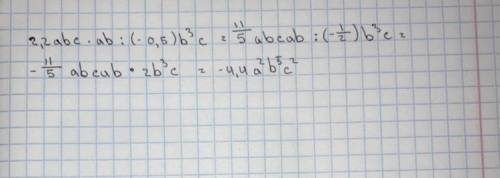 2,2abc · ab : (-0,5)b³c = 11/5 abcab : (-1/2)b³c =
- 11/5 abcab · 2b³c = -4,4a²b⁵c²